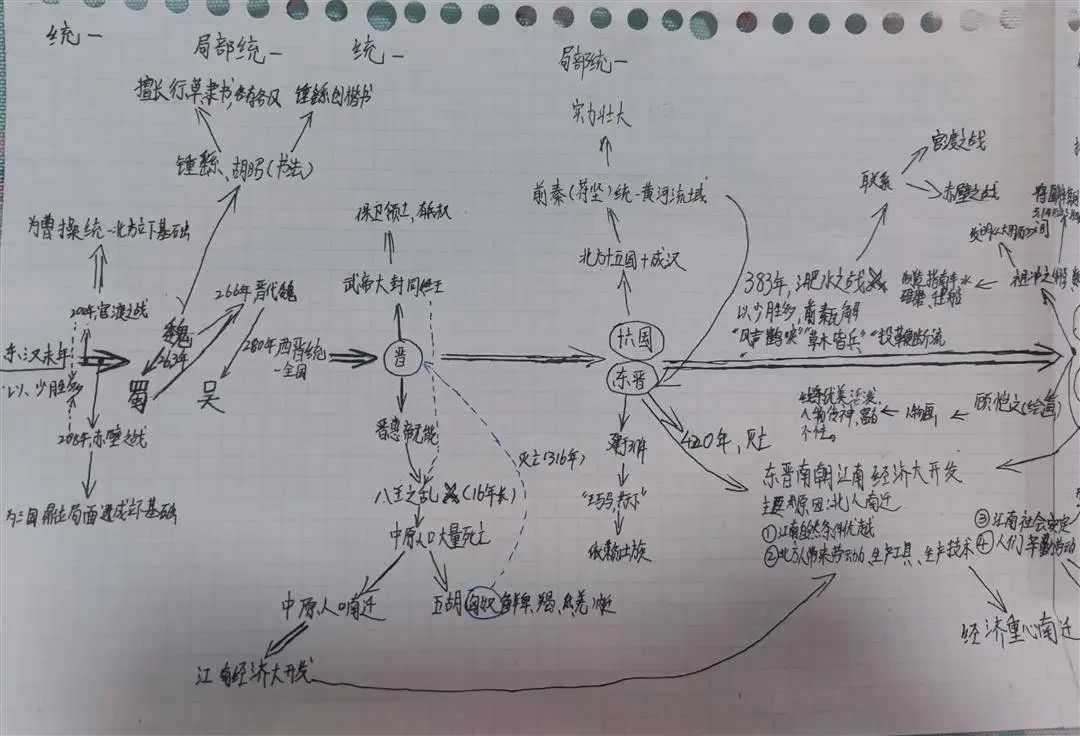 统一
局部统一
统一
局部统一
擅长行草隶书,各有各风
锺繇创楷书
锺繇、胡昭(书法)
为曹操统一北方立下基础
200年,官渡之战
266年晋代魏
魏
263年
蜀
吴
东汉末年
以少胜多
208年,赤壁之战
280年西晋统
一全国
保卫领土,有兵权
武帝大封同姓王
晋
晋惠帝无能
灭亡(316年)
八王之乱
(16年长)
中原人口大量死亡
中原人口南迁
五胡 匈奴 鲜卑、羯、氐、羌内迁
江南经济大开发
实力壮大
前秦(苻坚)统一黄河流域
北方十五国+成汉
十六国
东晋
依赖士族
420年,灭亡
383年,淝水之战
以少胜多,前秦瓦解
"风声鹤唳""草木皆兵""投鞭断流
联系
官渡之战
赤壁之战
祖冲之
顾恺之(绘画)
人物画
人物传神,富有
个性。
东晋南朝江南经济大开发
主要原因:北人南迁
①江南自然条件优越
②北方人带来劳动力、生产工具、生产技术
③江南社会安定
④人们辛勤劳动
经济重心南迁